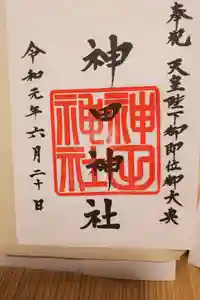 奉祝 天皇陛下御即位御大典
神田神社
令和元年六月二十日
神田
神社